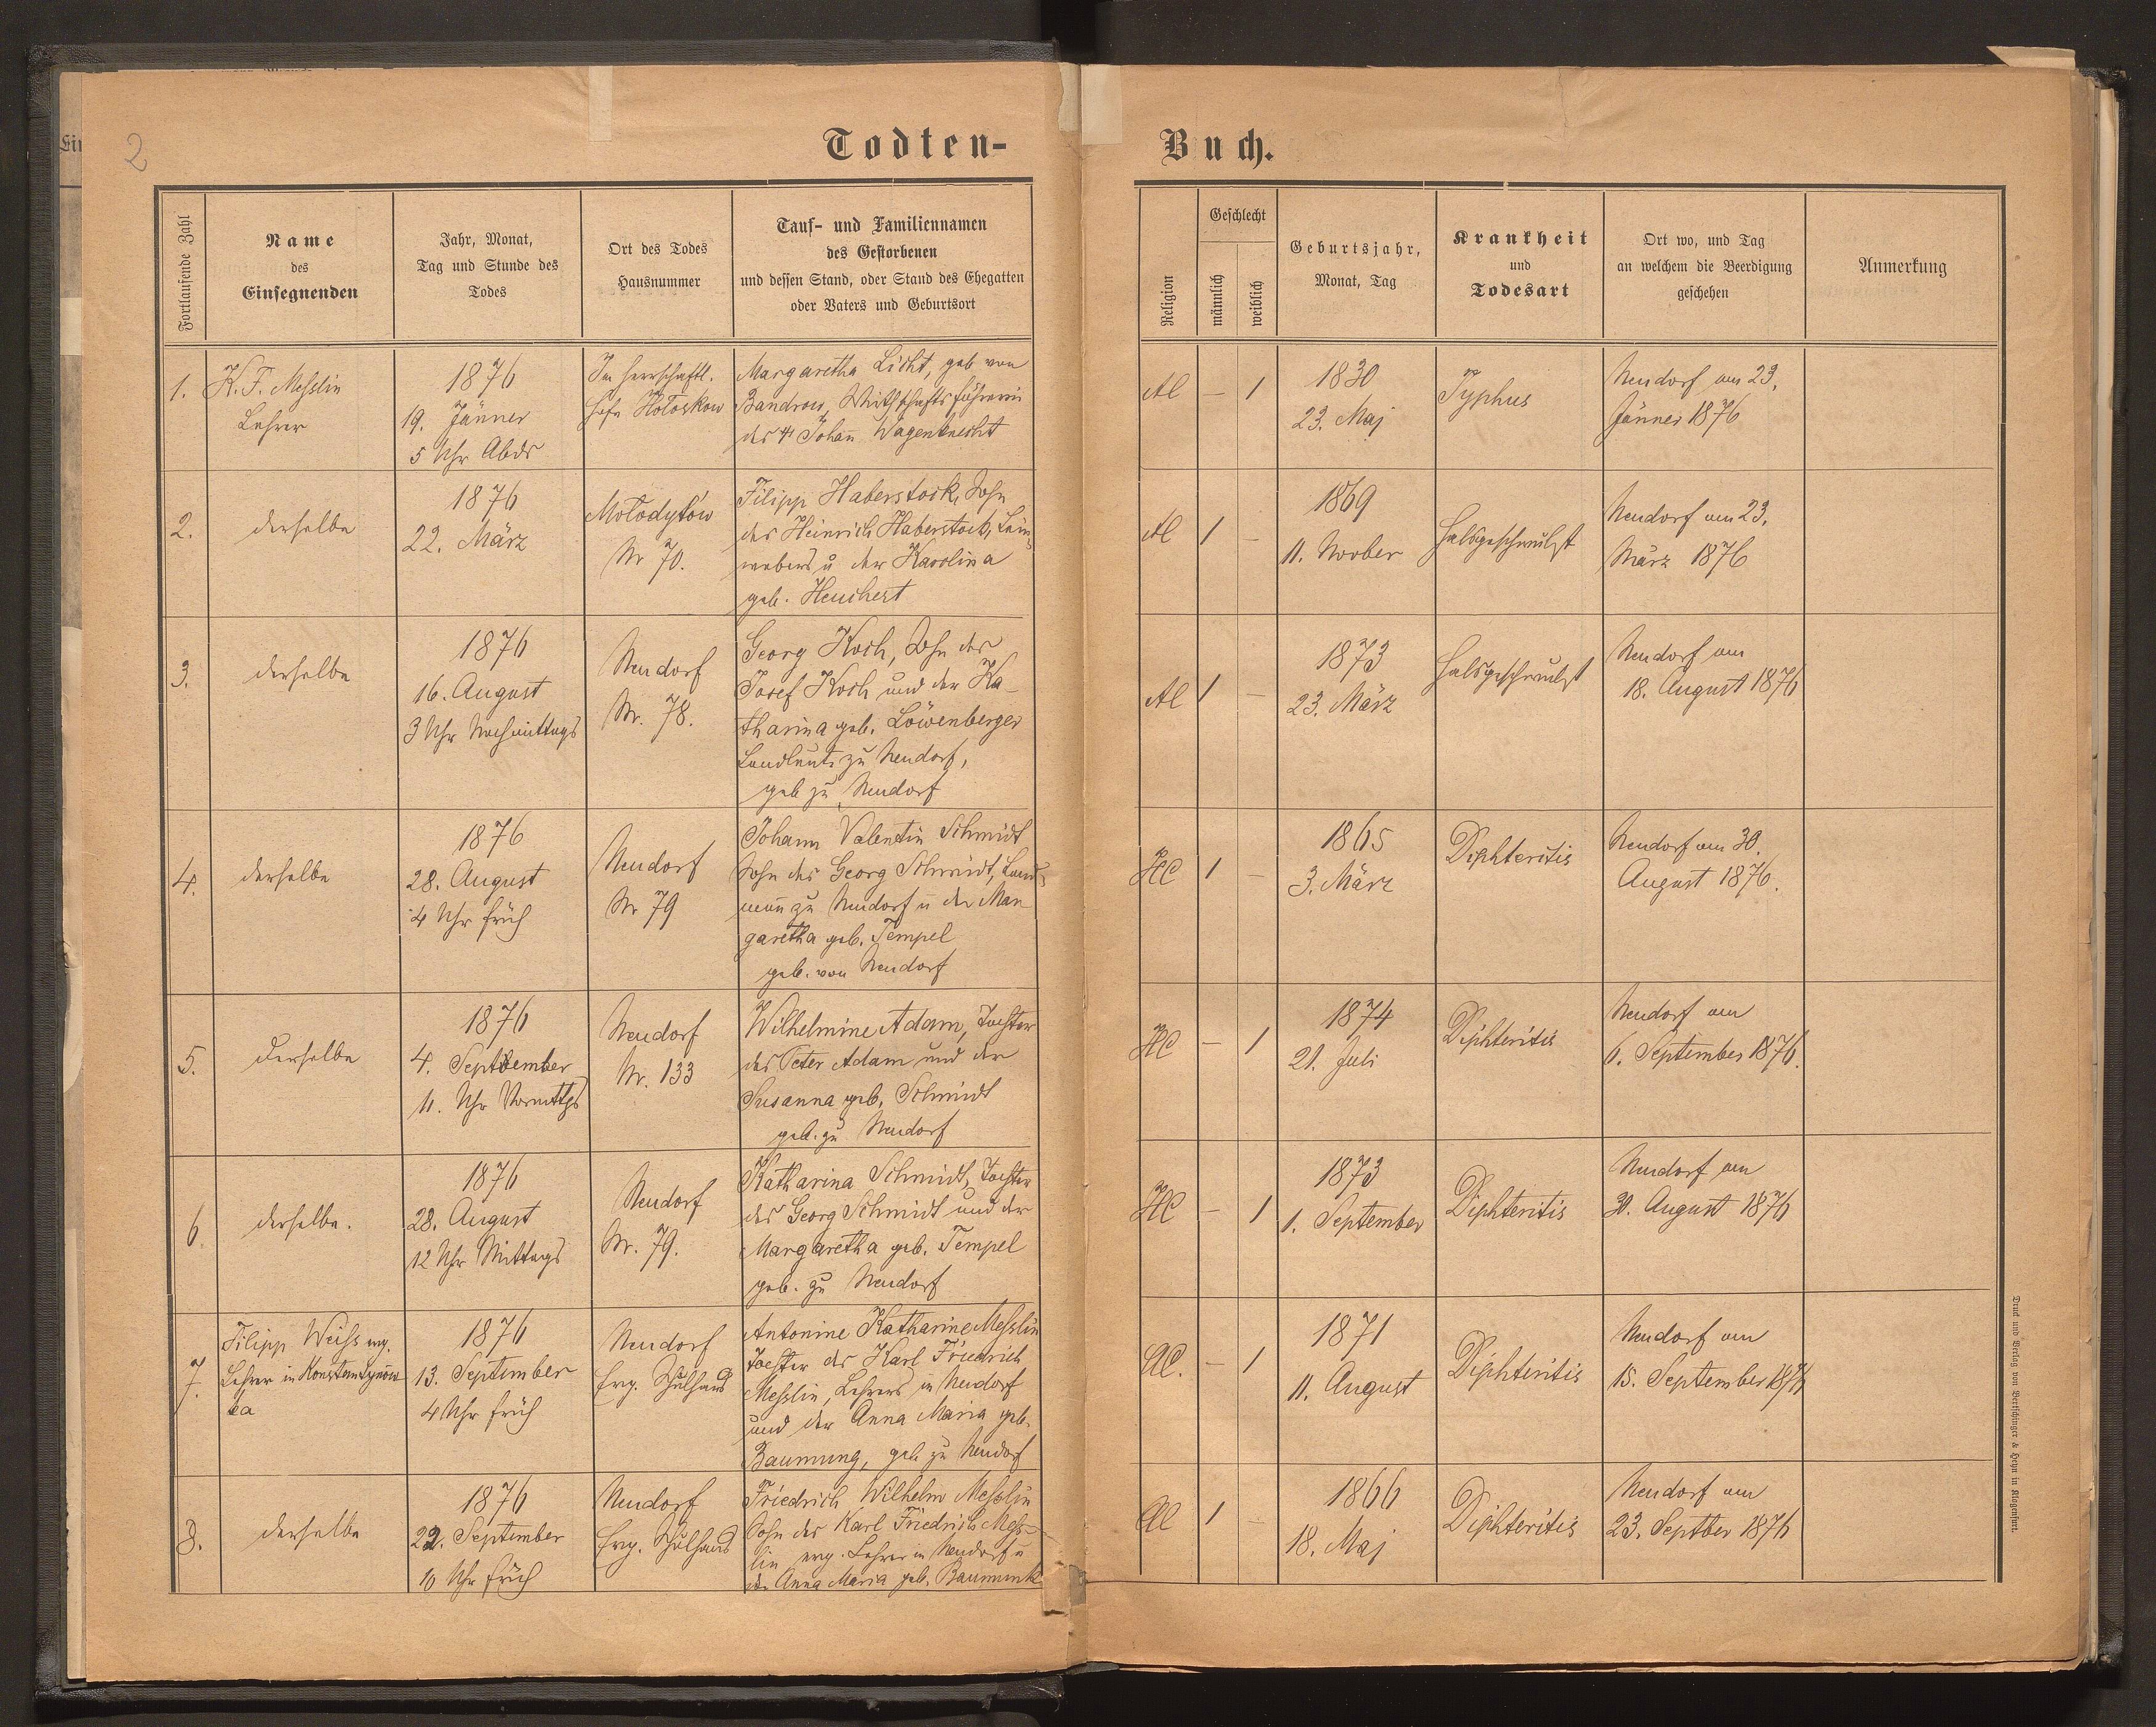 2
Todten-
Buch.
Fortlaufende Zahl
Name
des
Einsegnenden
Jahr, Monat,
Tag und Stunde des
Todes
Ort des Todes
Hausnummer
Tauf- und Familiennamen
des Gestorbenen
und dessen Stand, oder Stand des Ehegatten
oder Vaters und Geburtsort
Religion
Geschlecht
männlich
weiblich
Geburtsjahr,
Monat, Tag
Krankheit
und
Todesart
Ort wo, und Tag
an welchem die Beerdigung
geschehen
Anmerkung
1.
K. F. Messlin
Lehrer
1876
19. Jänner
5 Uhr Abds
Im herrschaftl.
Hofe Hołoskow
Margaretha Licht, geb von
Bandrow, Wirthschaftsführerin
des Johan̄ Wagenknecht
AC
–
1
1830
23. Maj
Typhus
Neudorf am 23.
Jänner 1876
2.
derselbe
1876
22. März
Mołodyłów
Nr 70.
Filipp Haberstock, Sohn
des Heinrich Haberstock, Lein-
webers u der Karolina
geb. Heuchert
AC
1
–
1869
11. Novber
Halsgeschwulst
Neudorf am 23.
März 1876
3.
derselbe
1876
16. August
3 Uhr Nachmittags
Neudorf
Nr. 78.
Georg Koch, Sohn des
Josef Koch und der Ka-
tharina geb. Löwenberger
Landleute zu Neudorf,
geb zu Neudorf
AC
1
–
1873
23. März
Halsgeschwulst
Neudorf am
18. August 1876
4.
derselbe
1876
28. August
4 Uhr früh
Neudorf
Nr 79
Johann Valentin Schmidt
Sohn des Georg Schmidt, Land-
man̄ zu Neudorf u der Mar
garetha geb. Tempel
geb. von Neudorf
HC
1
–
1865
3. März
Diphteritis
Neudorf am 30.
August 1876.
5.
derselbe
1876
4. September
11. Uhr Vormittgs
Neudorf
Nr. 133
Wilhelmine Adam, Tochter
des Peter Adam und der
Susanna geb. Schmidt
geb. zu Neudorf
HC
–
1
1874
21. Juli
Diphteritis
Neudorf am
6. September 1876.
6.
derselbe.
1876
28. August
12 Uhr Mittags
Neudorf
Nr. 79.
Katharina Schmidt, Tochter
des Georg Schmidt und der
Margaretha geb. Tempel
geb. zu Neudorf
HC
–
1
1873
1. September
Diphteritis
Neudorf am
30. August 1876
7.
Filipp Weiss evg.
Lehrer in Konstantynow
ka
1876
13. September
4 Uhr früh
Neudorf
Evg. Schulhaus
Antonine Katharine Messlin
Tochter des Karl Friedrich
Messlin, Lehrers in Neudorf
und der Anna Maria geb.
Baumung, geb zu Neudorf
AC.
–
1
1871
11. August
Diphteritis
Neudorf am
15. September 1876
8.
derselbe
1876
22. September
10 Uhr früh
Neudorf
Evg. Schulhaus
Friedrich Wilhelm Messlin
Sohn des Karl Friedrich Mess-
lin evg. Lehrer in Neudorf u
der Anna Maria geb. Baumunk
AC
1
–
1866
18. Maj
Diphteritis
Neudorf am
23. Septber 1876
Druck und Verlag von Bertschinger & Heyn in Klagenfurt.